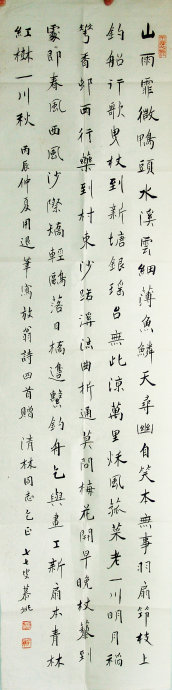 山雨霏微鴨頭水溪雲細薄魚鱗天尋幽自笑本無事羽扇筇枝上
釣船行歌曳杖到新塘銀瑤台無此涼萬里秋風菰菜老一川明月稻
花香邨西行藥到村東沙路溟濛曲折通莫問梅花開早晚杖藜到
處即春風西風沙際矯輕鷗落日橋邊繫釣舟乞與畫工新扇本青林
紅樹一川秋 丙辰仲夏用退筆寫放翁詩四首贈 清林同志乞正 七七叟